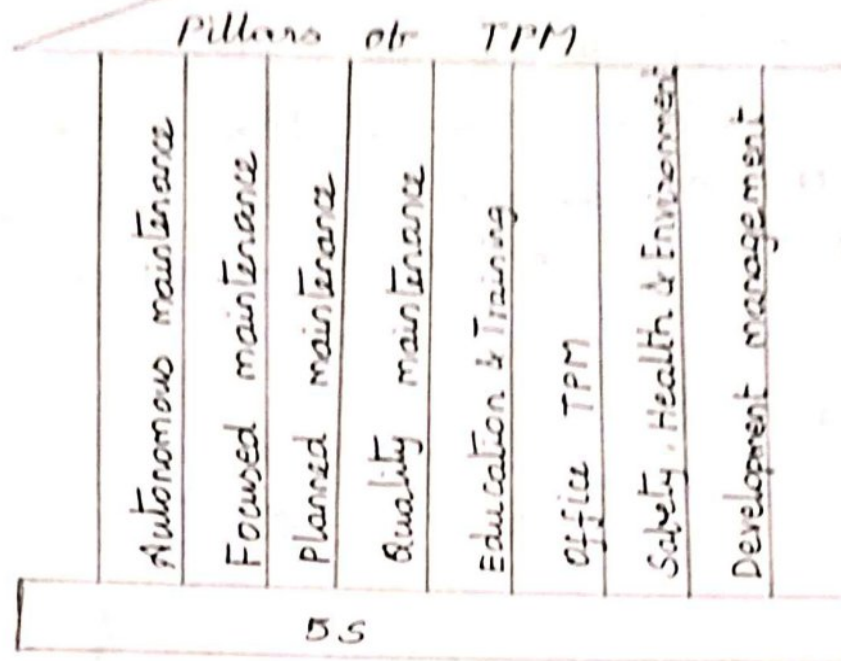 Pillars of TPM
Autonomous maintenance
Focused maintenance
Planned maintenance
Quality maintenance
Education & Training
Office TPM
Safety, Health & Environment
Development management
5S